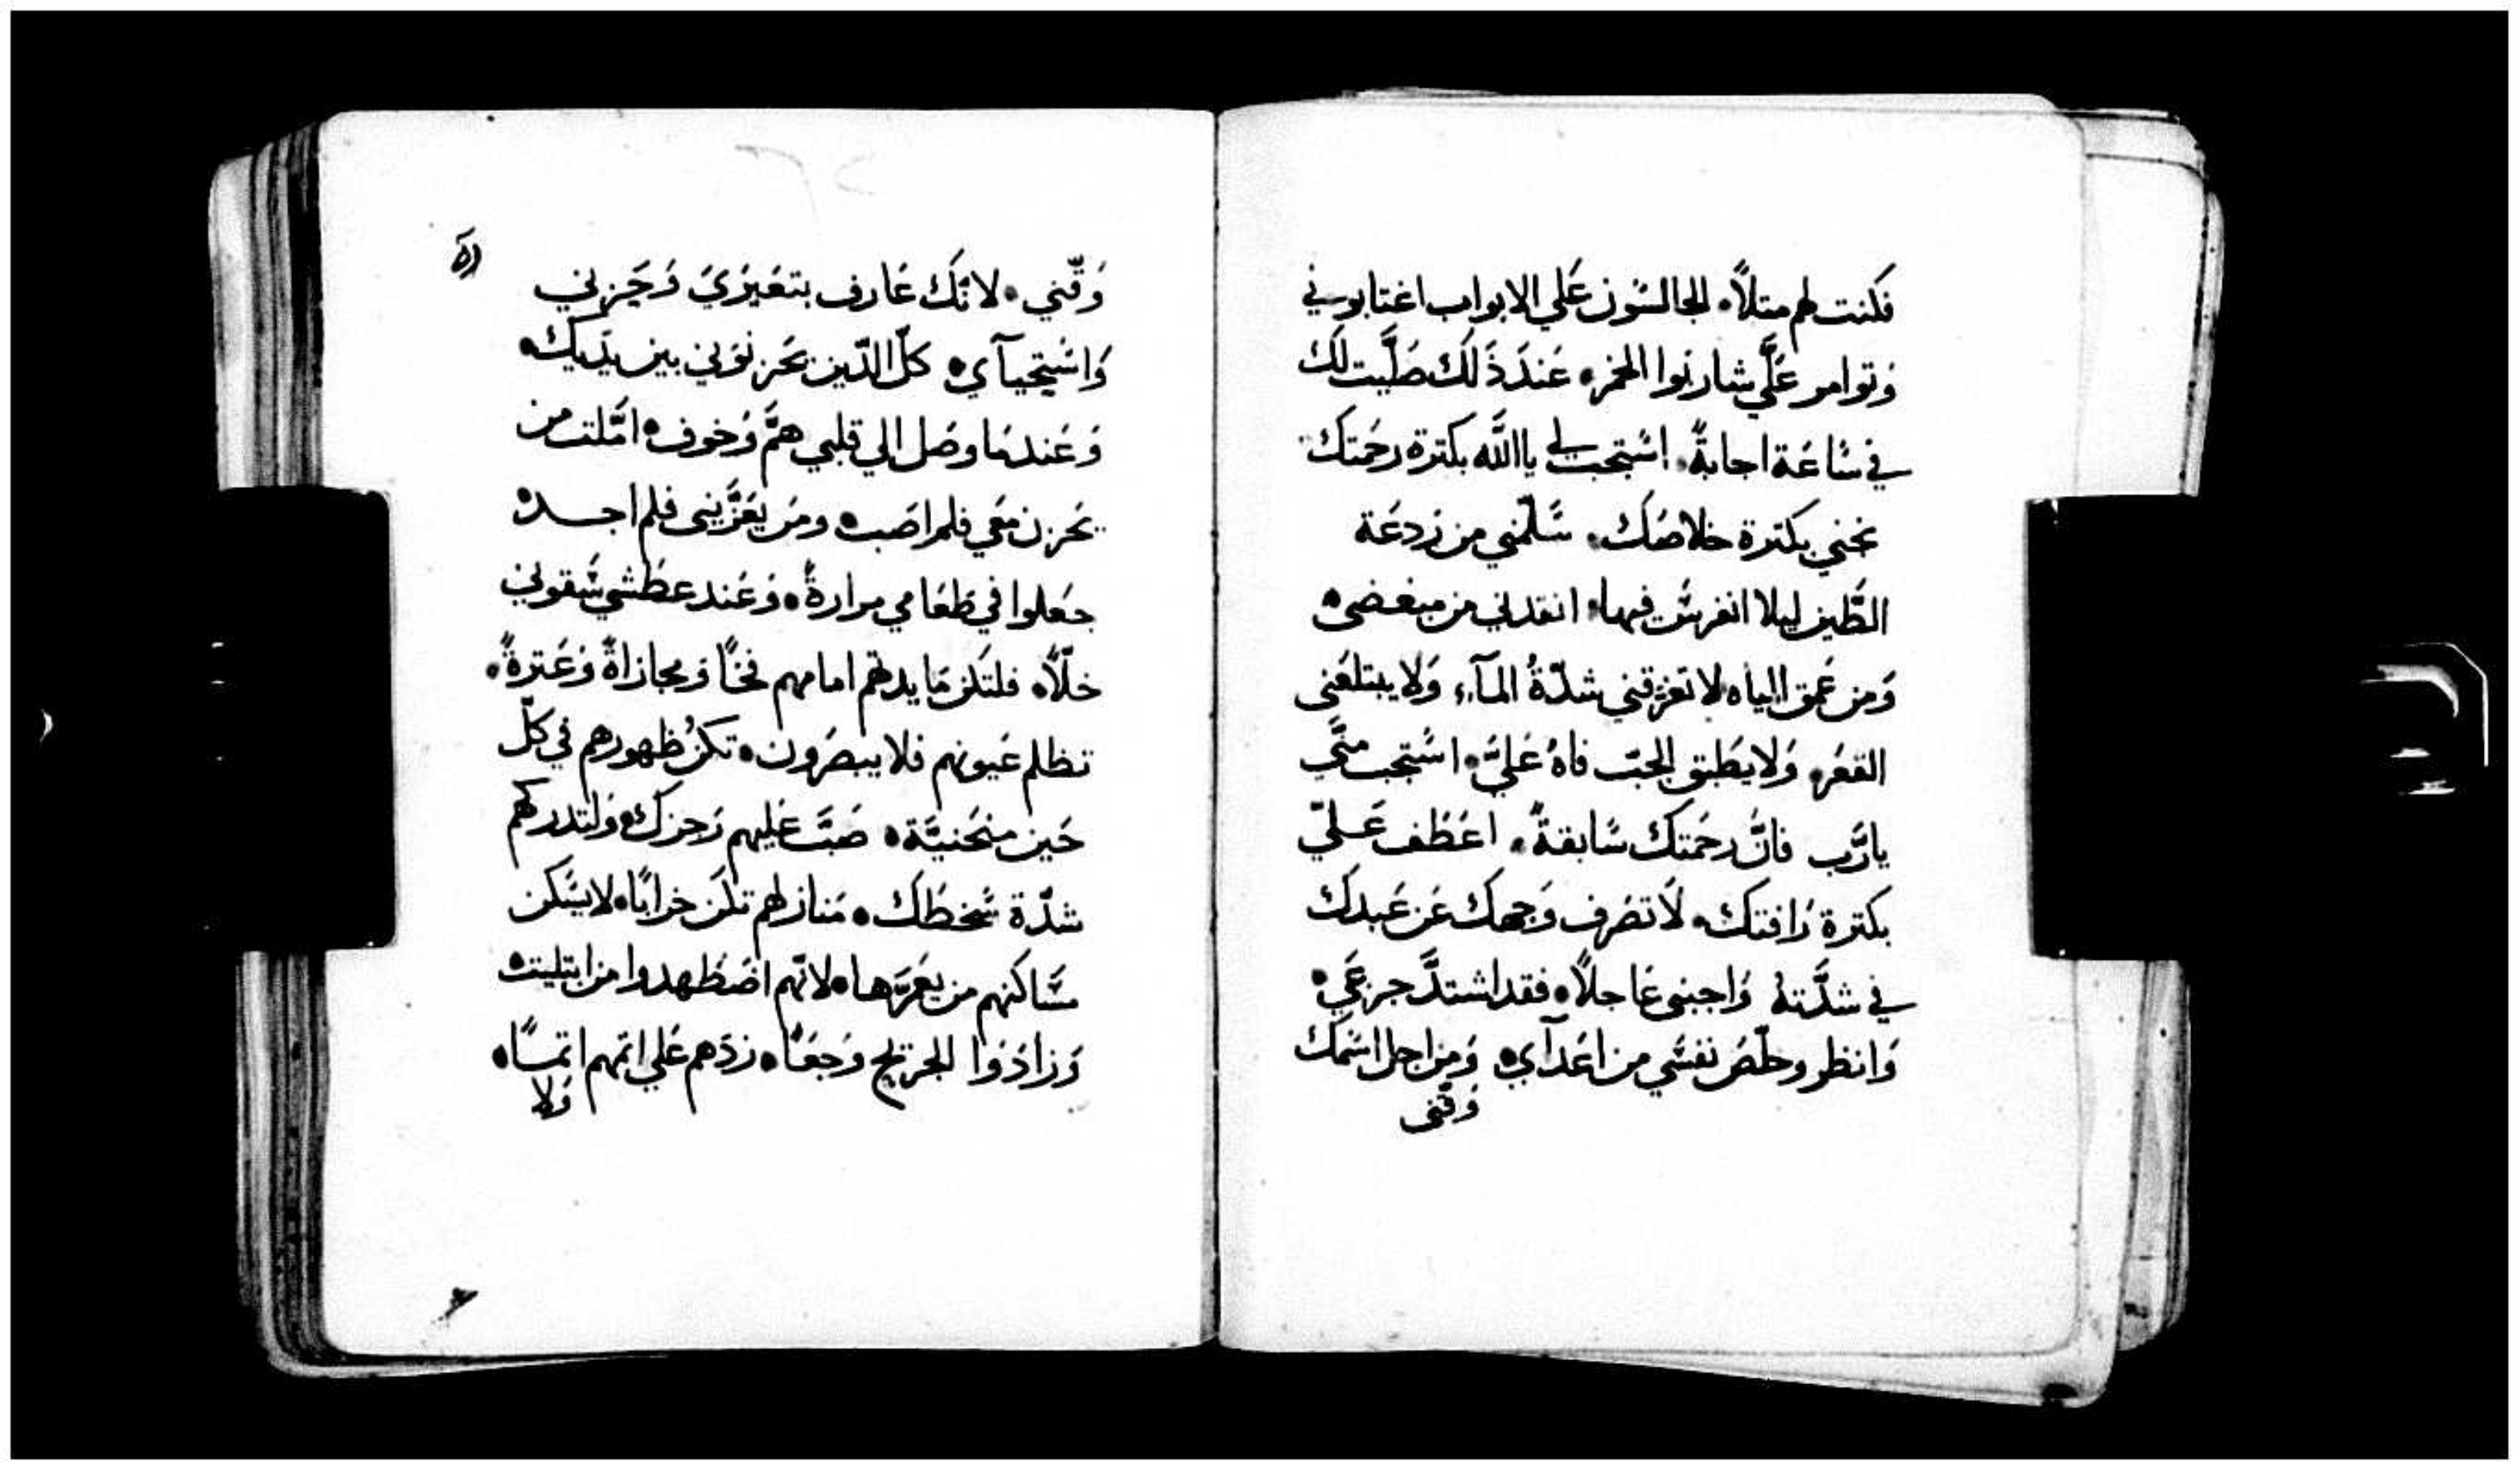 فكنت لهم متلاً. الجالسُون عَلي الابواب اغتابوني
وَتوامر عَلَّي شاربَوا الخمر. عَندَ ذَلكَ صَلَّيت لكَ
في سَاعَة اجابةً. استجب لي ياالله بكترة رحَمتك
نجني بكترة خلاصَك. سَلّمني من زدعَة
الطَّين ليلا انغرسَ فيها. انقدني من مبغضي.
وَمن عَمق المياه لا تغرّقني شدّةُ المآء، وَلا يبتلعَني
القعَر. وَلا يطَبق الجبّ فاهُ عَليَّ. استجب منّي
يارَّب فانَّ رحَمتك سَابقةً. اعَطَف عَليّ
بكترة رَافتك. لَا تصَرف وَجهك عَن عَبدكَ
في شدَّتهُ وَاجبنى عَاجلاً. فقد اشتدَّ جزعَي.
وَانظر وخلّصَ نفسَي من اعَدآي. وَمن اجل اسَمك
وَقّنى
٥١
وَقّني. لانّكَ عَارف بتعَيرَيَ وَخَزني
وَاسَتحيآي. كلّ الدّين يحَزنوَني بين يدَيك.
وَعَندمَا وصَل الي قلبي همَّ وَخوف. امَّلت من
يحَزن معَي فلم اصَب. ومَن يعَزَّيني فلم اجد.
جعَلوا في طَعَامي مرارةً. وَعَند عطَشي سَقوني
خلّاً. فلتكَن مَايدتهم امامهم فخًا وَمجازاةً وَعَترةً.
تظلم عَيونهم فلا يبصَرون. تكنُ ظهورهم في كلّ
حَين منحَنيَّة. صَبَّ عَليهم رَجزك. وَلتدركهم
شدّة سَخطَك. مَنازلهم تكَن خرابًا. لا يسَكن
مسَاكنهم من يعَمَّرها. لانّهم اضَطَهدوا من ابتليت.
وَزادَوا الجريَح وَجعَاً. زدَهم عَلي اتمهم اتمًا.
وَلا